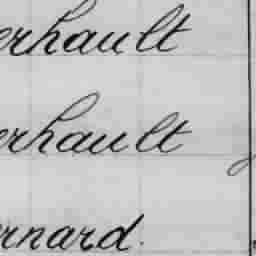 erhault
erhault
ernard.